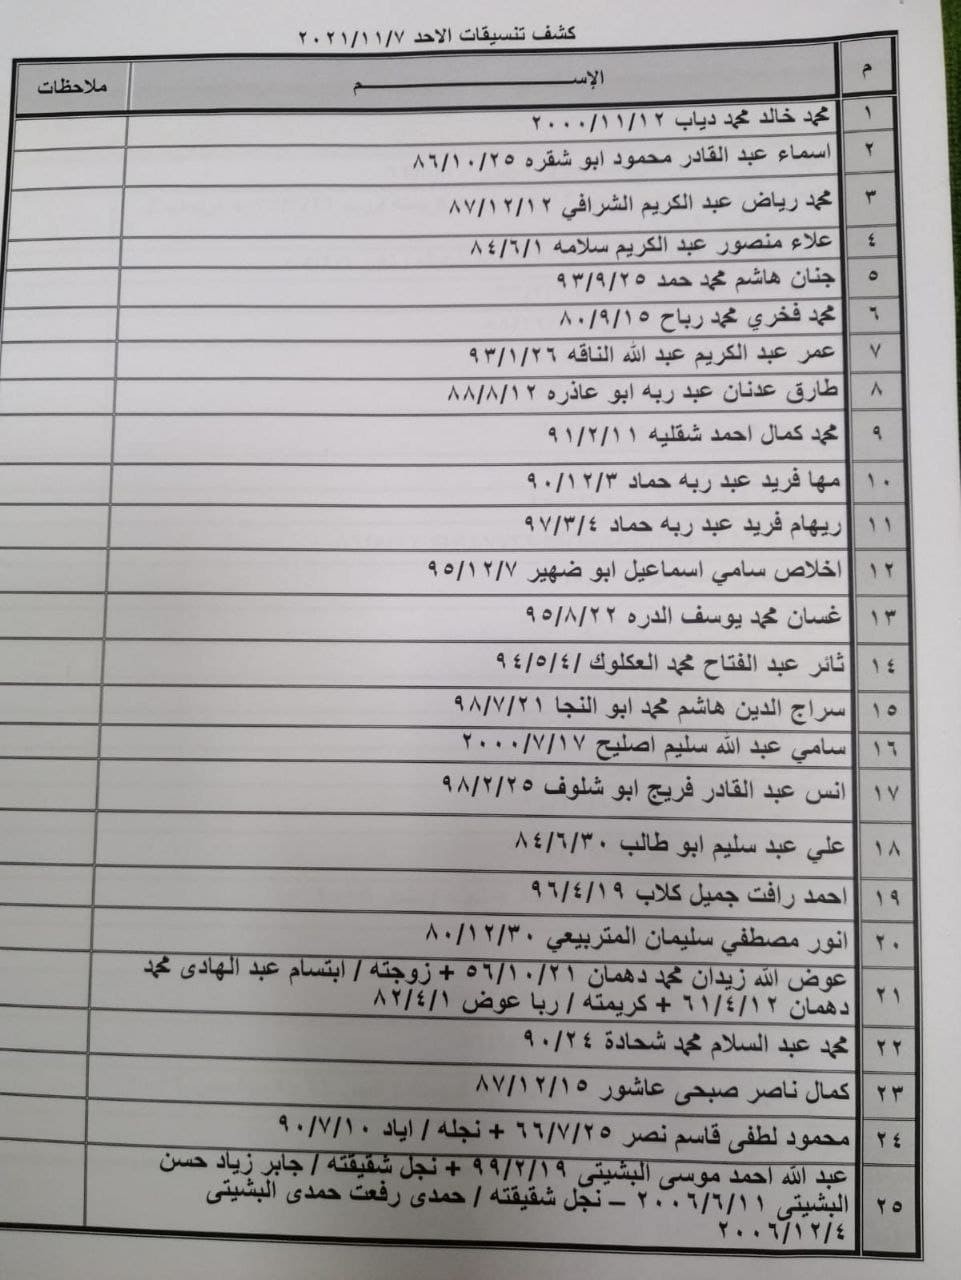 كشف تنسيقات الاحد ٢٠٢١/١١/٧
م الإســـــــم ملاحظات
١ محمد خالد محمد دياب ٢٠٠٠/١١/١٢
٢ اسماء عبد القادر محمود ابو شقره ٨٦/١٠/٢٥
٣ محمد رياض عبد الكريم الشرافي ٨٧/١٢/١٢
٤ علاء منصور عبد الكريم سلامه ٨٤/٦/١
٥ جنان هاشم محمد حمد ٩٣/٩/٢٥
٦ محمد فخري محمد رباح ٨٠/٩/١٥
٧ عمر عبد الكريم عبد الله الناقه ٩٣/١/٢٦
٨ طارق عدنان عبد ربه ابو عاذره ٨٨/٨/١٢
٩ محمد كمال احمد شقليه ٩١/٢/١١
١٠ مها فريد عبد ربه حماد ٩٠/١٢/٣
١١ ريهام فريد عبد ربه حماد ٩٧/٣/٤
١٢ اخلاص سامي اسماعيل ابو ضهير ٩٥/١٢/٧
١٣ غسان محمد يوسف الدره ٩٥/٨/٢٢
١٤ ثائر عبد الفتاح محمد العكلوك /٩٤/٥/٤
١٥ سراج الدين هاشم محمد ابو النجا ٩٨/٧/٢١
١٦ سامي عبد الله سليم اصليح ٢٠٠٠/٧/١٧
١٧ انس عبد القادر فريج ابو شلوف ٩٨/٢/٢٥
١٨ علي عبد سليم ابو طالب ٨٤/٦/٣٠
١٩ احمد رافت جميل كلاب ٩٦/٤/١٩
٢٠ انور مصطفي سليمان المتربيعي ٨٠/١٢/٣٠
٢١ عوض الله زيدان محمد دهمان ٥٦/١٠/٢١ + زوجته / ابتسام عبد الهادى محمد
دهمان ٦١/٤/١٢ + كريمته / ربا عوض ٨٢/٤/١
٢٢ محمد عبد السلام محمد شحادة ٩٠/٢٤
٢٣ كمال ناصر صبحى عاشور ٨٧/١٢/١٥
٢٤ محمود لطفى قاسم نصر ٦٦/٧/٢٥ + نجله / اياد ٩٠/٧/١٠
٢٥ عبد الله احمد موسى البشيتى ٩٩/٢/١٩ + نجل شقيقته / جابر زياد حسن
البشيتى ٢٠٠٦/٦/١١ – نجل شقيقته / حمدى رفعت حمدى البشيتى
٢٠٠٦/١٢/٤